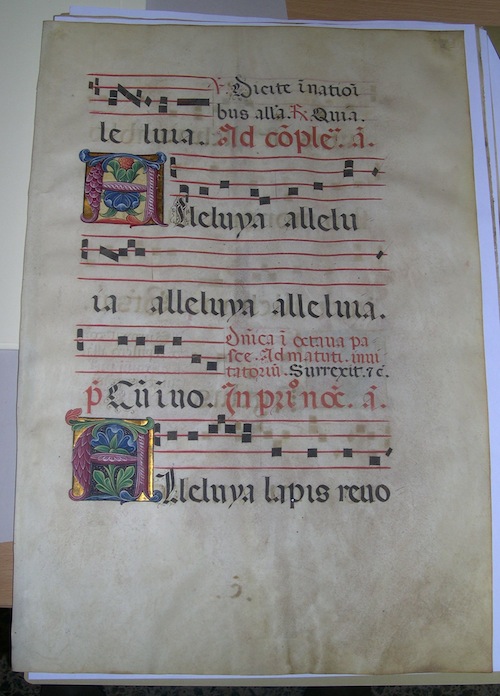 ℣. Dicite ī natiōi
bus alľa. ℟. Quia.
le luia. Ad cōpleť. ā.
Alleluya allelu
ia alleluya alleluia.
Dñica ī octava pa
sce. Ad matuti. invi
tatoriū. Surrexit. ⁊ c.
p̄ Cūi ivo. In prīo noc̄. ā.
Alleluya lapis revo